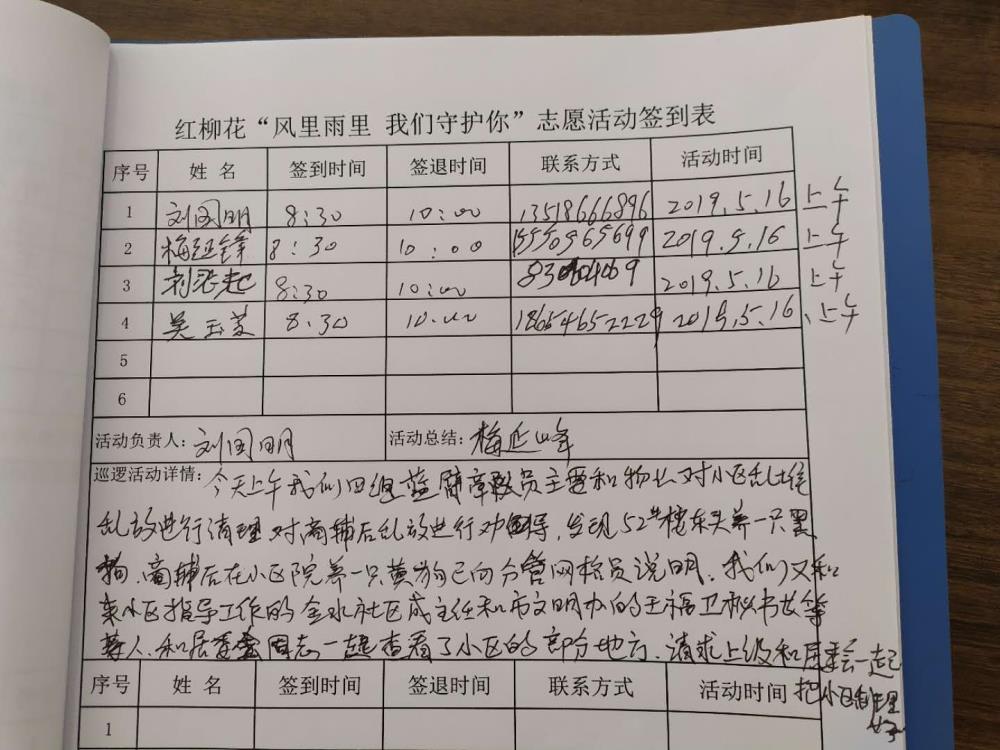 红柳花“风里雨里 我们守护你”志愿活动签到表
序号 姓 名 签到时间 签退时间 联系方式 活动时间
1 刘国明 8:30 10:00 13518666896 2019.5.16 上午
2 梅延锋 8:30 10:00 15550965699 2019.5.16 上午
3 8:30 10:00 2019.5.16 上午
4 吴玉芝 8:30 10:00 18654652229 2019.5.16 上午
5
6
活动负责人: 刘国明 活动总结: 梅延峰
巡逻活动详情: 今天上午我们四组蓝臂章队员主要和物业对小区乱堆
乱放进行清理,对商铺后乱放进行劝导,发现52#楼东头养一只黑
狗,商铺后在小区院养一只黄狗已向分管网格员说明,我们又和
来小区指导工作的金水社区成主任和市文明办的王福卫秘书长等
等人,和居委会同志一起查看了小区的部分地方,请求上级和居委会一起
把小区治理
好
序号 姓 名 签到时间 签退时间 联系方式 活动时间
1